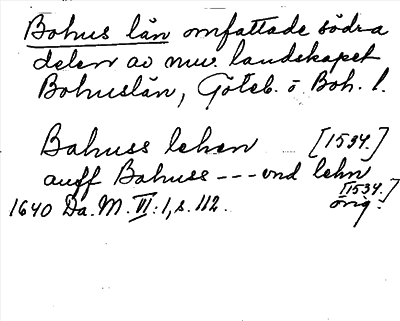 Bohus län omfattade södra
delen av nuv. landskapet
Bohuslän, Göteb. o Boh. l.
Bahuss lehen [1534.]
auff Bahuss --- vnd lehn
[1534.]
1640 Da. M. VI: 1, s. 112. orig.